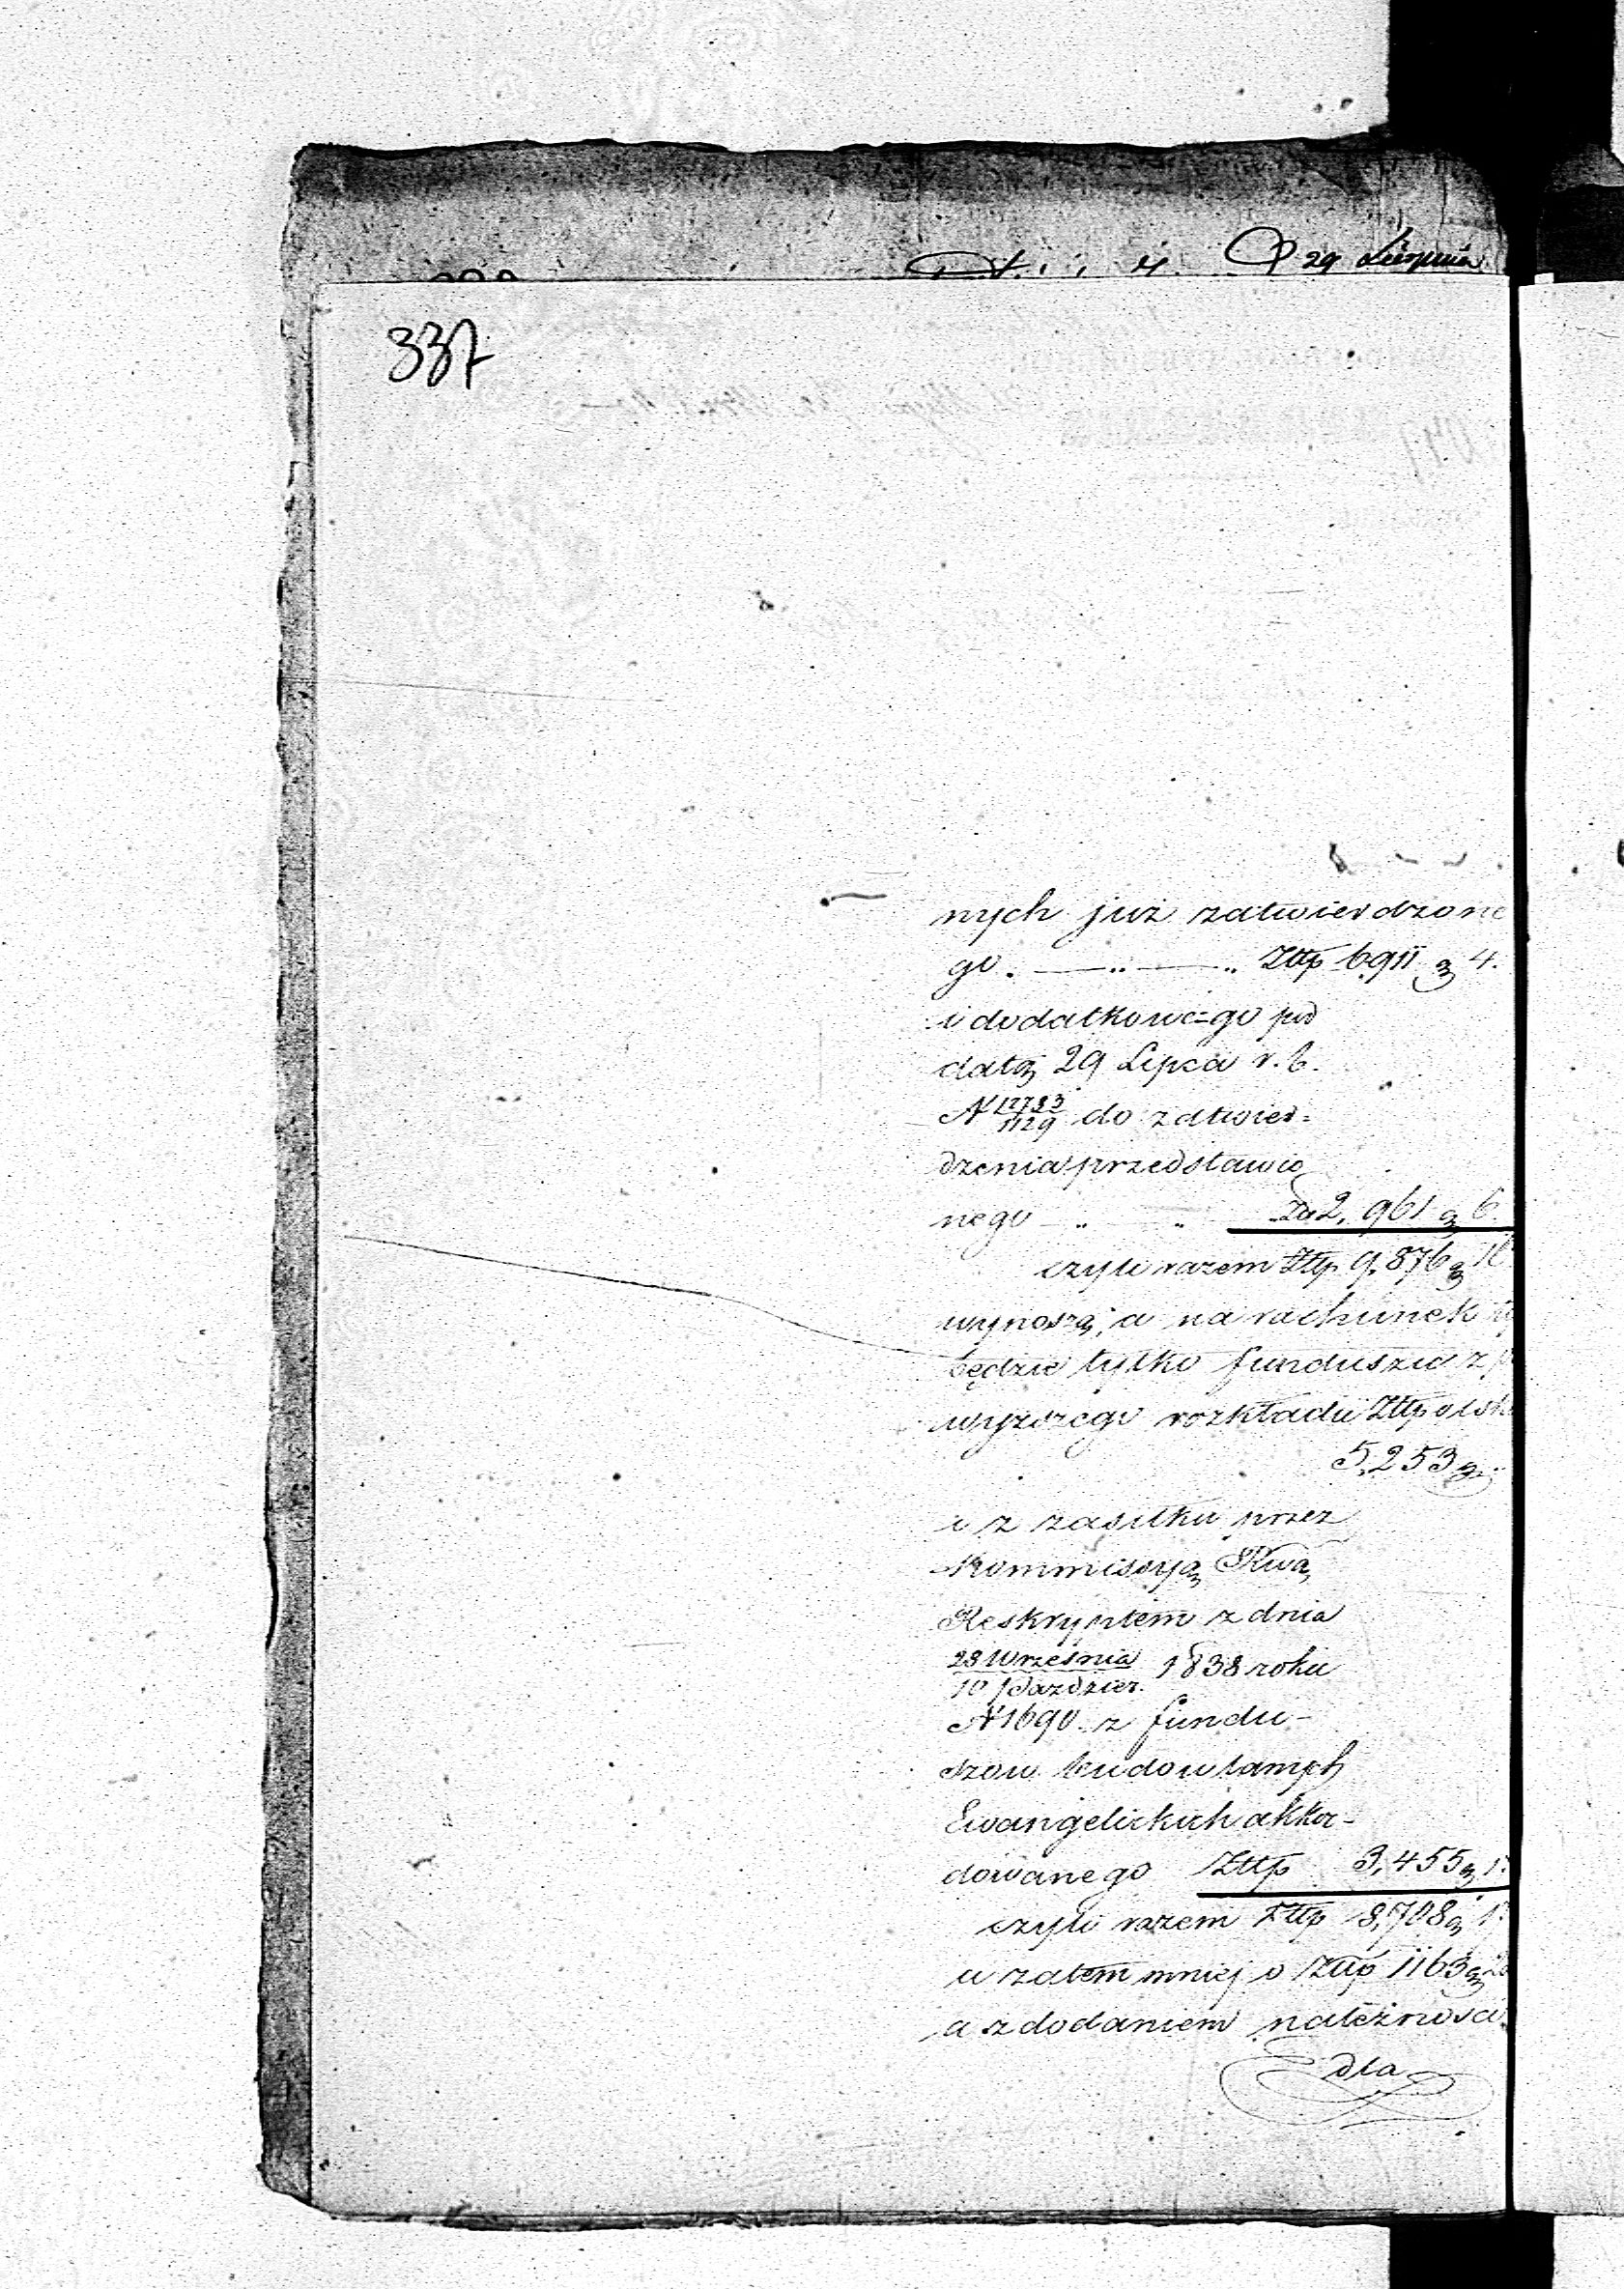 29 Sierpnia
337
nych już zatwierdzone
go. — .. — .. Złtp 6911 g 4.
i dodatkowe=go pod
datą 29 Lipca r. b.
N 12783/1129 do zatwier=
dzenia przedstawio
nego .. .. Zł 2,961 g 6.
czyli razem Złtp 9,876 g
wynoszą, a na rachunek
będzie tylko fundusze z
wyższego rozkładu Złtpolsk
5,253 g
i z zasiłku przez
Kommissyą Rwą
Reskryptem z dnia
28 Września/10 Paździer. 1838 roku
N 1690 z fundu-
szów budowlanych
Ewangelickich akkor-
dowanego Złtp 3,455 g
czyli razem Złtp 8,708 g
a zatem mniej o Złtp 1163 g
a z dodaniem należności
dla